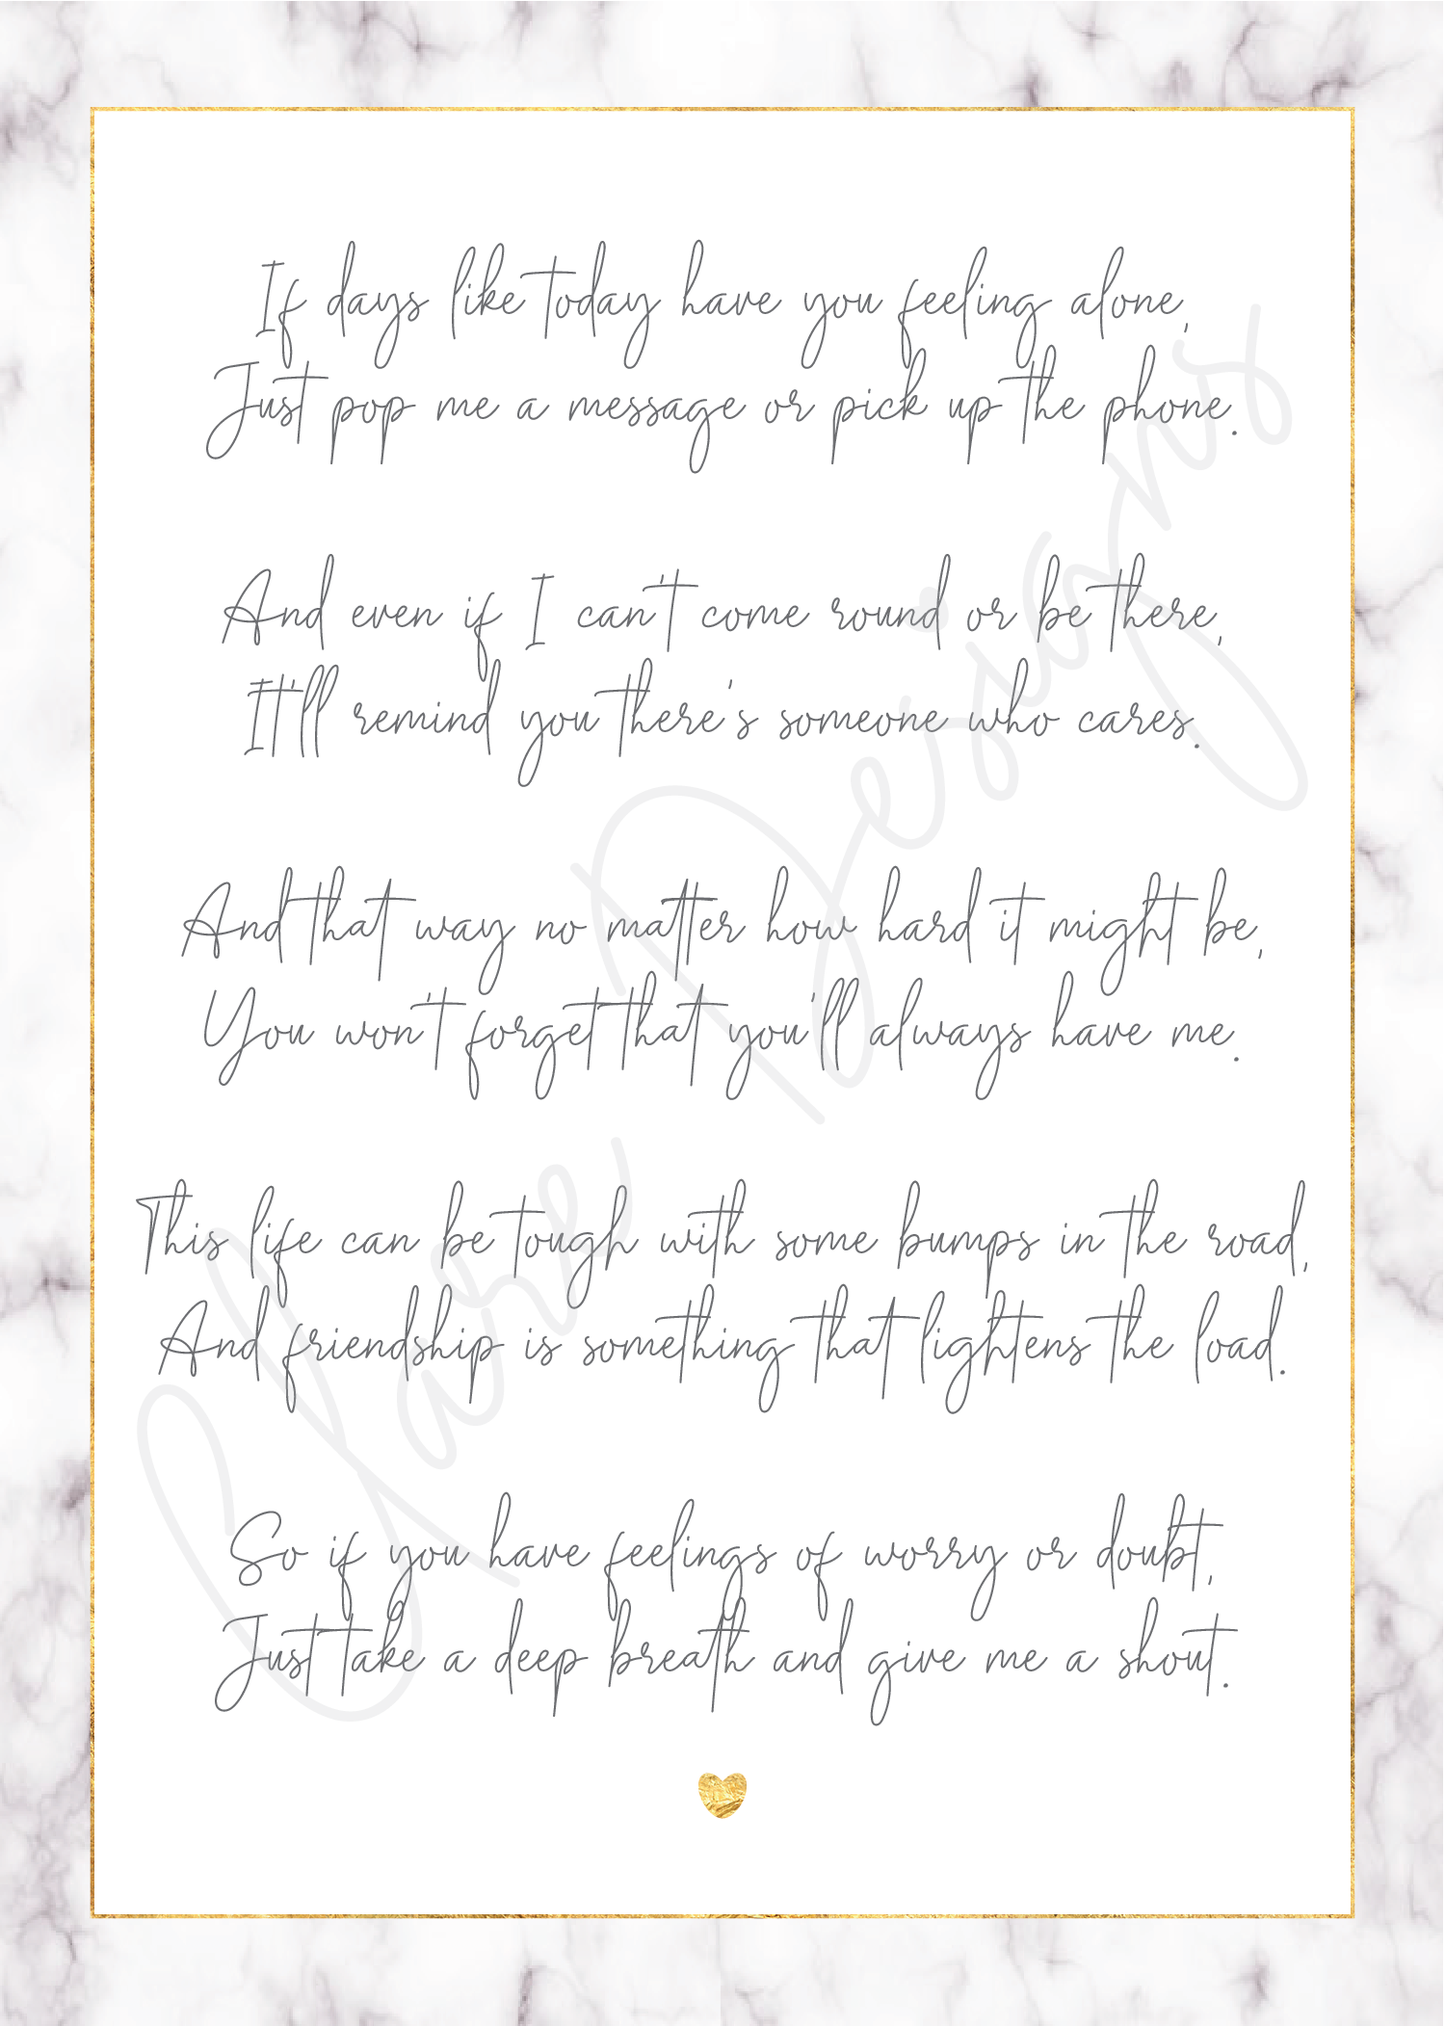 If days like today have you feeling alone,
Just pop me a message or pick up the phone.
And even if I can't come round or be there,
It'll remind you there's someone who cares.
And that way no matter how hard it might be,
You won't forget that you'll always have me.
This life can be tough with some bumps in the road,
And friendship is something that lightens the load.
So if you have feelings of worry or doubt,
Just take a deep breath and give me a shout.
Clare Designs